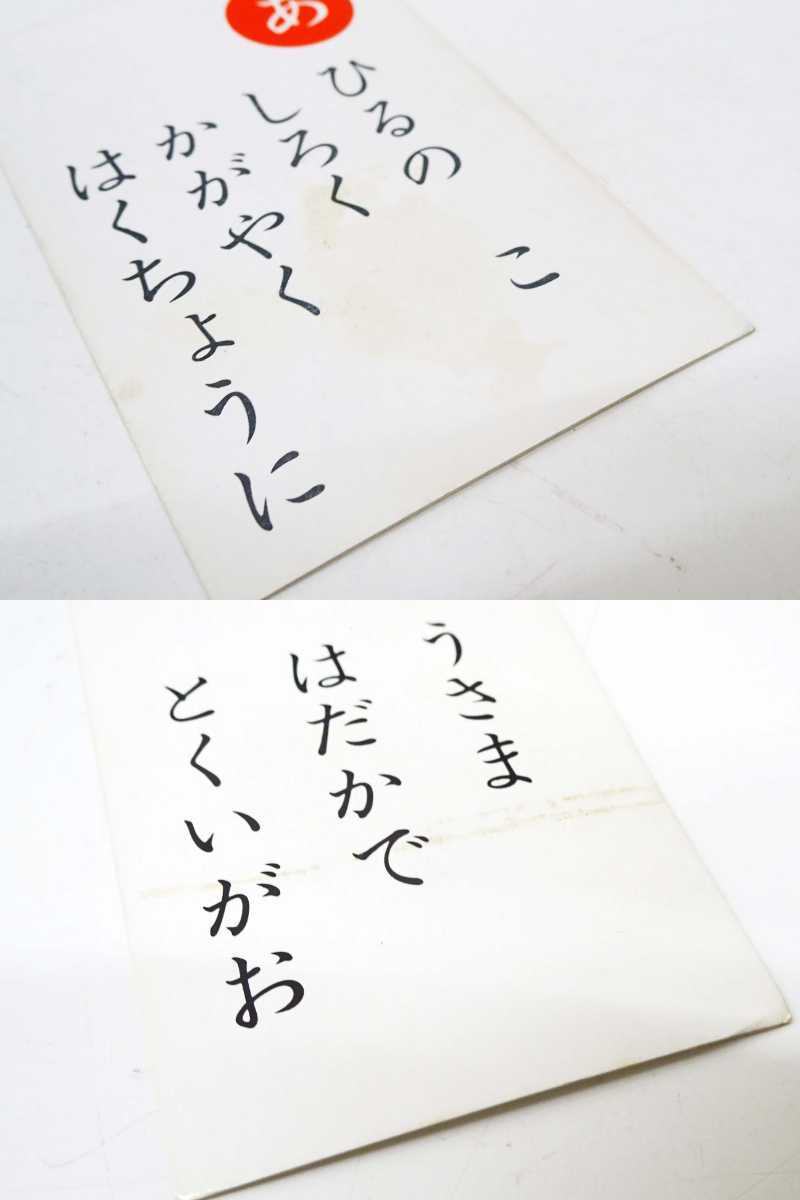 あ
ひるの こ
しろく
かがやく
はくちょうに
うさま
はだかで
とくいがお